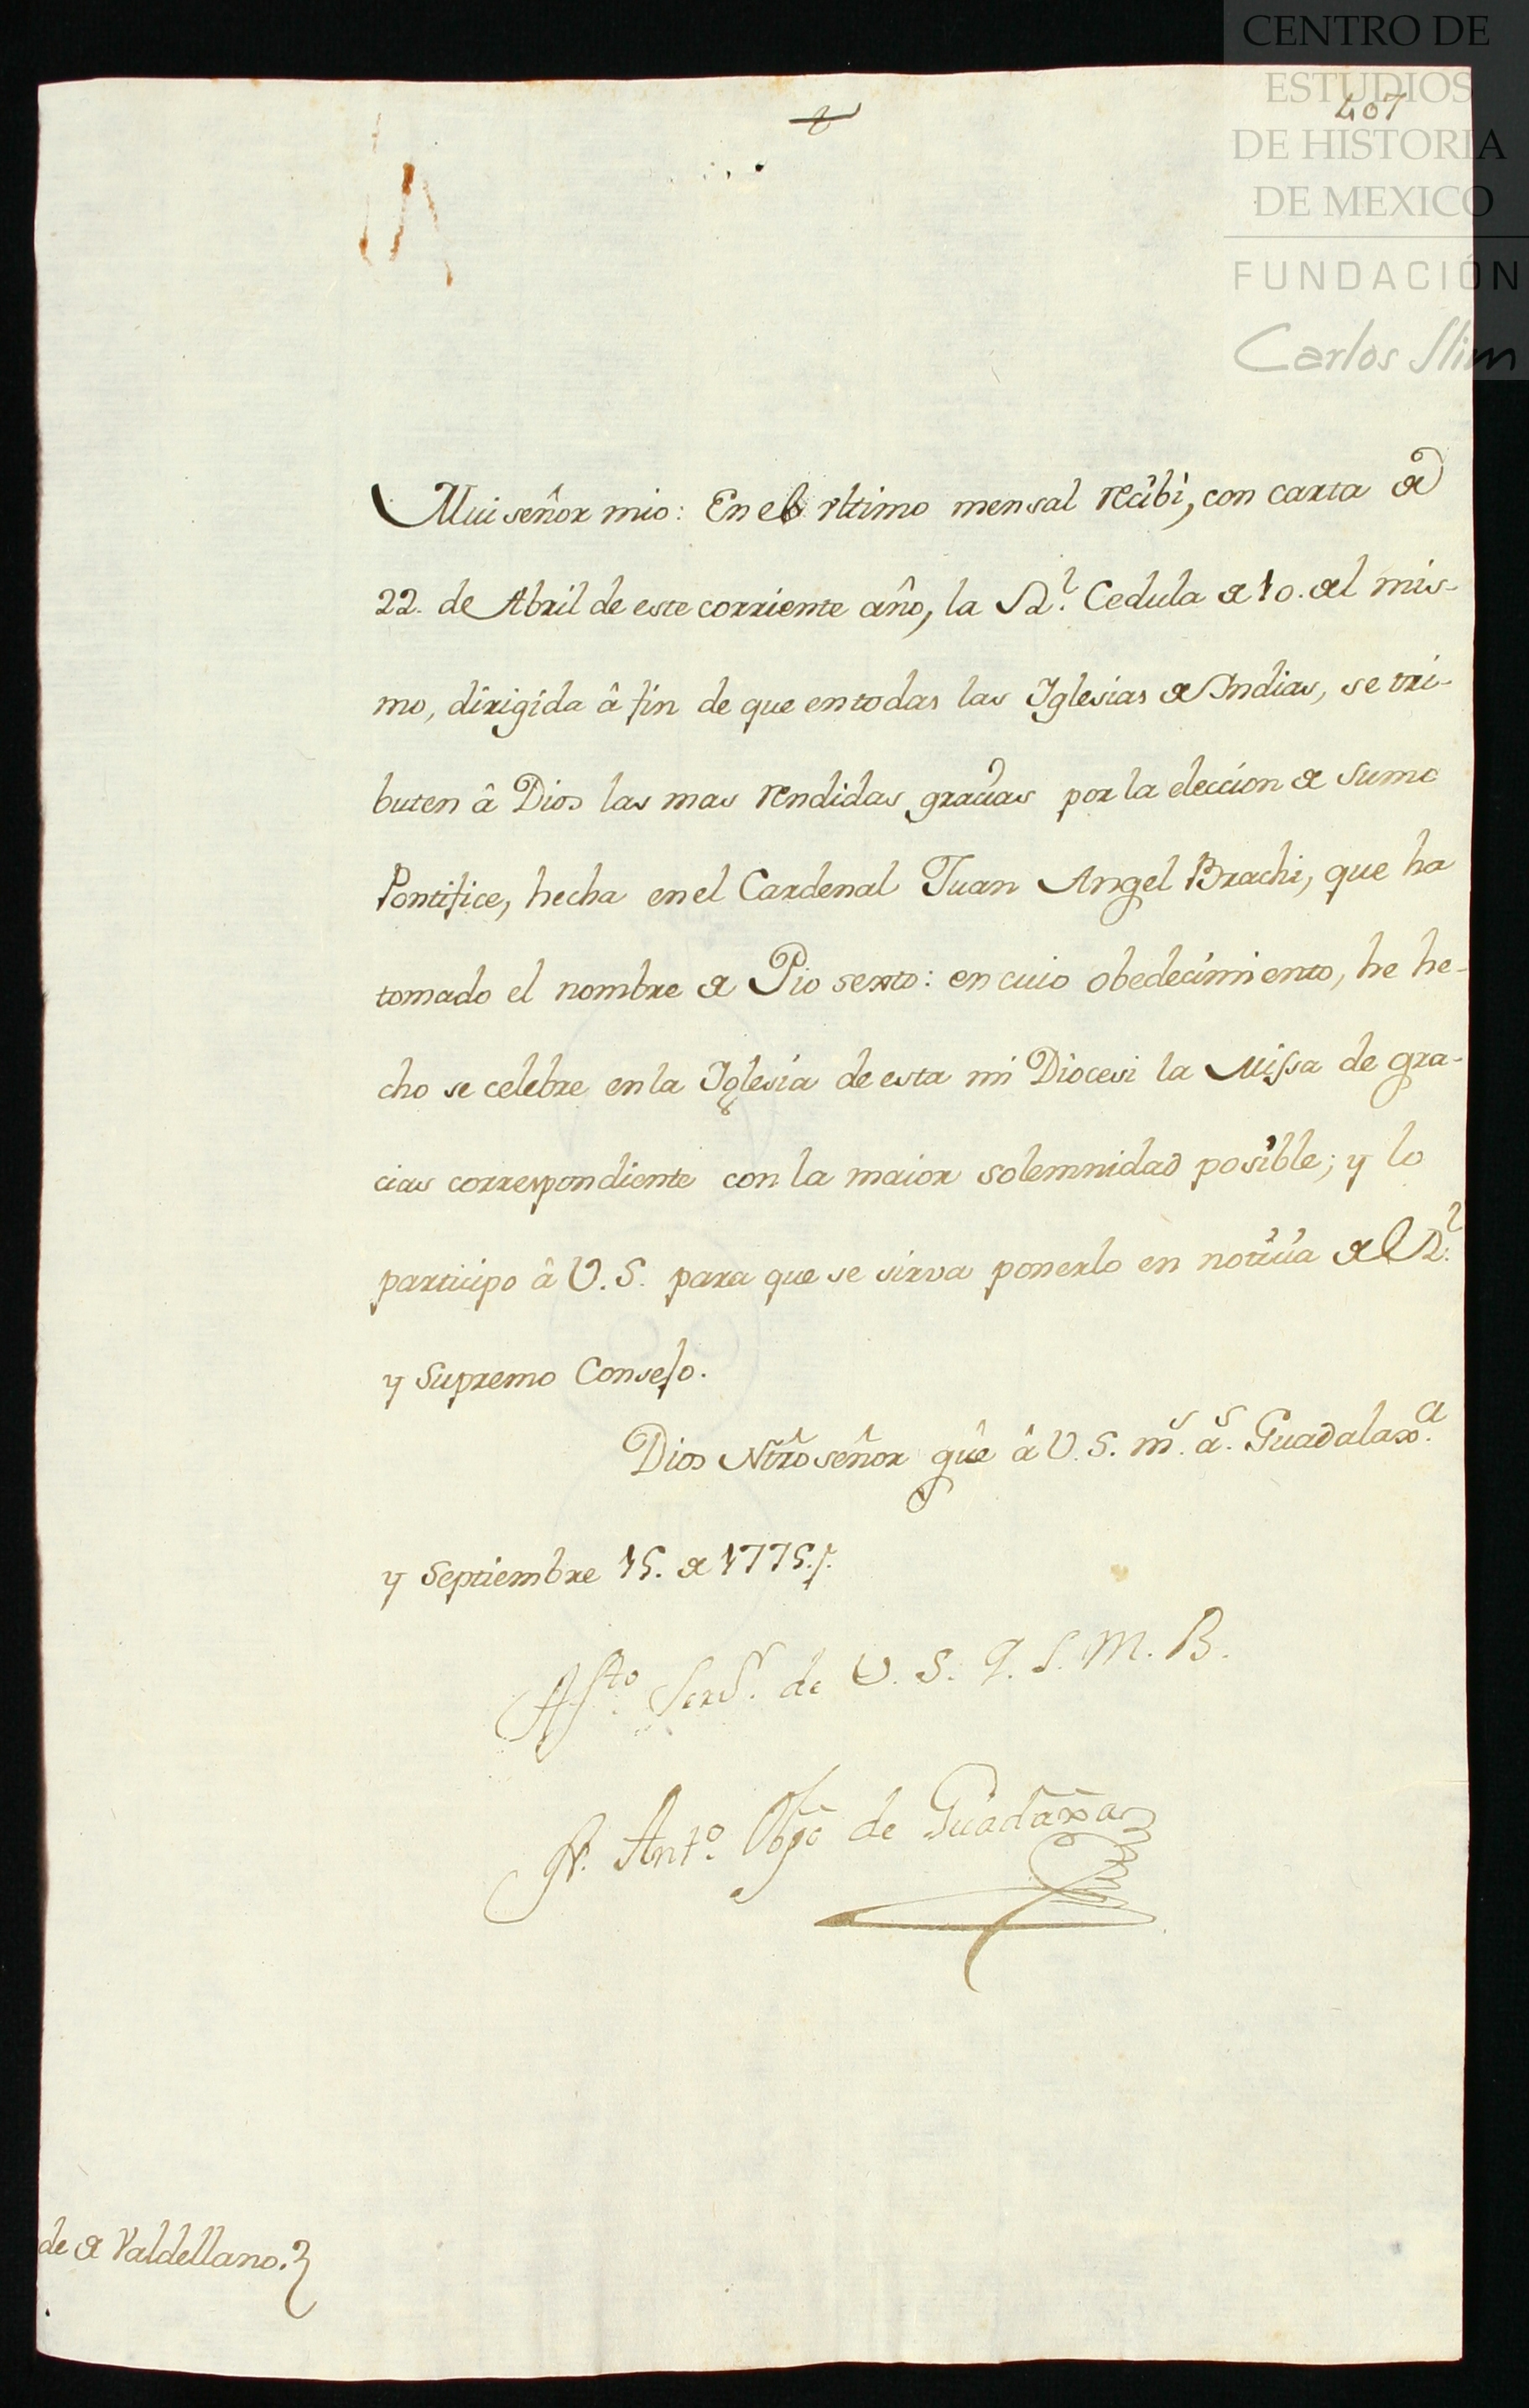 CENTRO DE
ESTUDIOS
DE HISTORIA
DE MEXICO
FUNDACIÓN
Carlos Slim
407
Mui señor mio: En el vltimo mensal recibi, con carta de
22. de Abril de este corriente año, la Rl. Cedula de 10. del mis-
mo, dirigida â fin de que en todas las Iglesias de Indias, se tri-
buten â Dios las mas rendidas gracias por la eleccion de Sumo
Pontifice, hecha en el Cardenal Juan Angel Brachi, que ha
tomado el nombre de Pio sexto: en cuio obedecimiento, he he-
cho se celebre en la Iglesia de esta mi Diocesi la Missa de gra-
cias correspondiente con la maior solemnidad posible; y lo
participo â V.S. para que se sirva ponerlo en noticia del Rl.
y Supremo Consejo.
Dios Ntro señor gûe â V.S. ms. as. Guadalaxa.
y Septiembre 15. de 1775.
Afto. Servr. de V. S. q. S. M. B.
Fr. Anto. Obpo de Guadaxara
de de Valdellano.